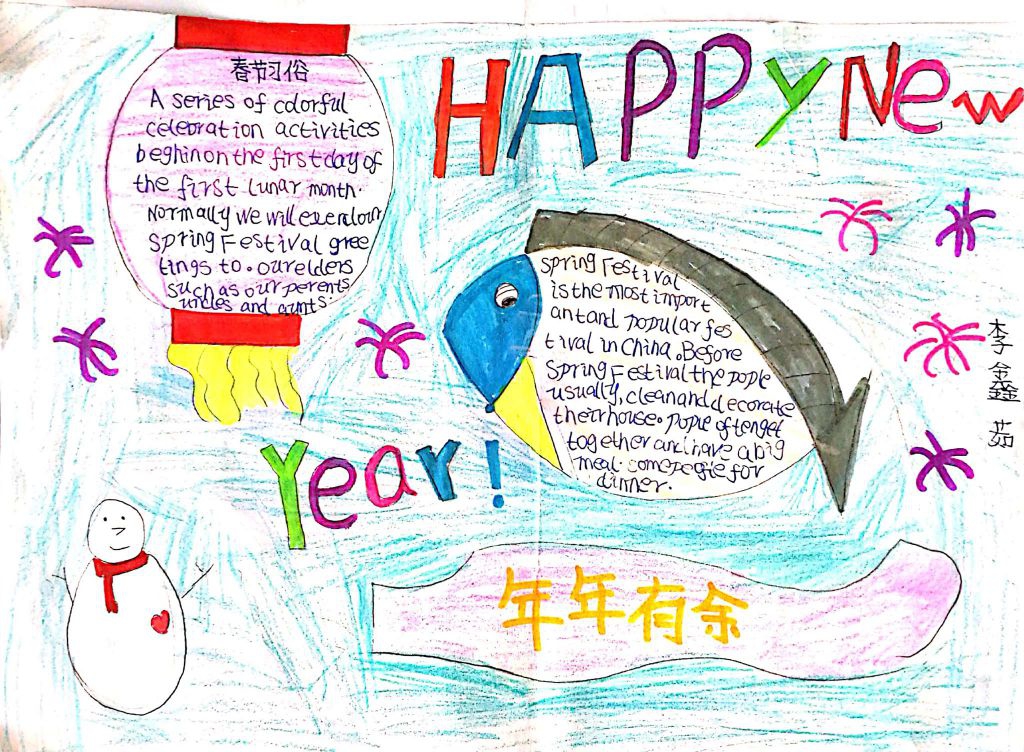 HAPPy New
春节习俗
A series of colorful
celebration activities
beghin on the first day of
the first lunar month.
Normally we will extend our
Spring Festival gree
tings to. our elders
such as our perents
uncles and aunts.
Spring Festival
is the most import
ant and popular fes
tival in China. Before
Spring Festival the pople
usually, clean and decorate
their house. pople often get
together and have a big
meal. some for
dinner.
李鑫茹
Year!
年年有余